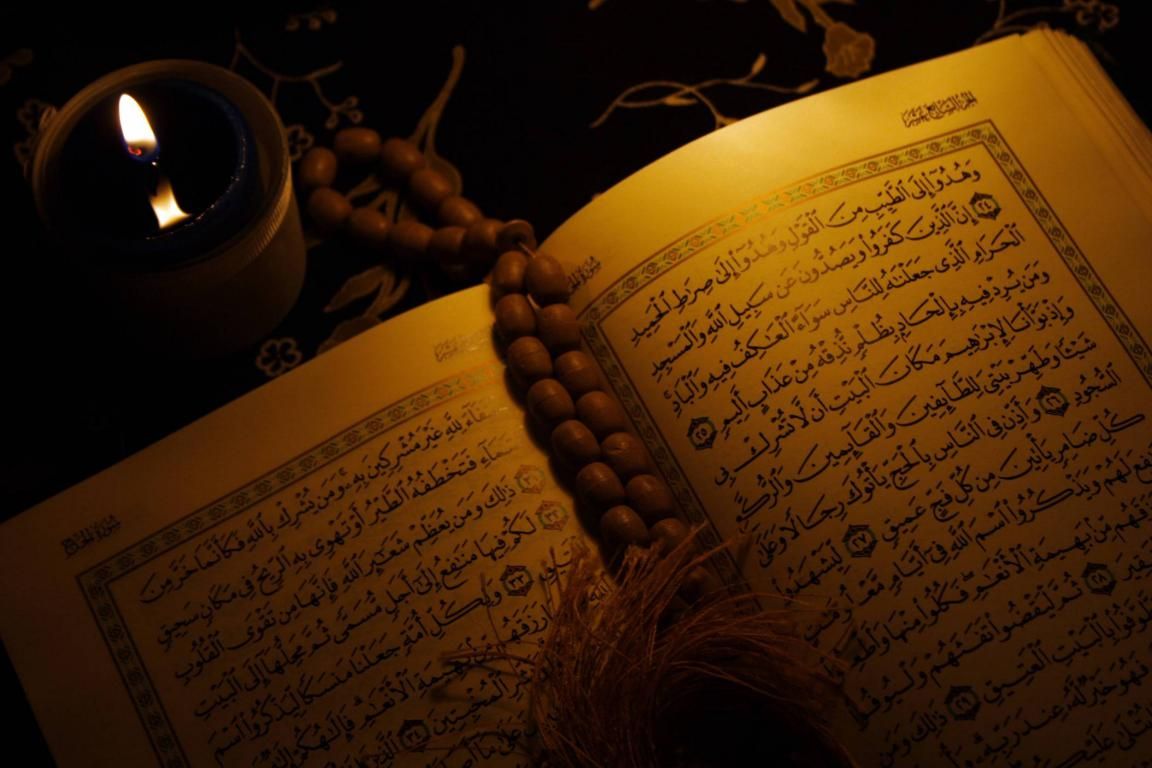 الجزء السابع عشر
وَهُدُوٓا۟ إِلَى ٱلطَّيِّبِ مِنَ ٱلْقَوْلِ وَهُدُوٓا۟ إِلَىٰ صِرَٰطِ ٱلْحَمِيدِ
٢٤ إِنَّ ٱلَّذِينَ كَفَرُوا۟ وَيَصُدُّونَ عَن سَبِيلِ ٱللَّهِ وَٱلْمَسْجِدِ
ٱلْحَرَامِ ٱلَّذِى جَعَلْنَٰهُ لِلنَّاسِ سَوَآءً ٱلْعَٰكِفُ فِيهِ وَٱلْبَادِ ۚ
وَمَن يُرِدْ فِيهِ بِإِلْحَادٍۭ بِظُلْمٍ نُّذِقْهُ مِنْ عَذَابٍ أَلِيمٍ ٢٥
وَإِذْ بَوَّأْنَا لِإِبْرَٰهِيمَ مَكَانَ ٱلْبَيْتِ أَن لَّا تُشْرِكْ بِى
شَيْـًٔا وَطَهِّرْ بَيْتِىَ لِلطَّآئِفِينَ وَٱلْقَآئِمِينَ وَٱلرُّكَّعِ
ٱلسُّجُودِ ٢٦ وَأَذِّن فِى ٱلنَّاسِ بِٱلْحَجِّ يَأْتُوكَ رِجَالًا وَعَلَىٰ
كُلِّ ضَامِرٍ يَأْتِينَ مِن كُلِّ فَجٍّ عَمِيقٍ ٢٧ لِّيَشْهَدُوا۟
لَهُمْ وَيَذْكُرُوا۟ ٱسْمَ ٱللَّهِ فِىٓ أَيَّامٍ
مِّنۢ بَهِيمَةِ ٱلْأَنْعَٰمِ ۖ فَكُلُوا۟ مِنْهَا
٢٨ ثُمَّ لْيَقْضُوا۟ تَفَثَهُمْ وَلْيُوفُوا۟
بِٱلْبَيْتِ ٱلْعَتِيقِ ٢٩ ذَٰلِكَ وَمَن
فَهُوَ خَيْرٌ لَّهُۥ عِندَ رَبِّهِۦ
سورة الحج
لِلَّهِ غَيْرَ مُشْرِكِينَ بِهِۦ ۚ وَمَن يُشْرِكْ بِٱللَّهِ فَكَأَنَّمَا خَرَّ مِنَ
فَتَخْطَفُهُ ٱلطَّيْرُ أَوْ تَهْوِى بِهِ ٱلرِّيحُ فِى مَكَانٍ سَحِيقٍ
٣١ ذَٰلِكَ وَمَن يُعَظِّمْ شَعَٰٓئِرَ ٱللَّهِ فَإِنَّهَا مِن تَقْوَى ٱلْقُلُوبِ
٣٢ لَكُمْ فِيهَا مَنَٰفِعُ إِلَىٰٓ أَجَلٍ مُّسَمًّى ثُمَّ مَحِلُّهَآ إِلَى ٱلْبَيْتِ
٣٣ وَلِكُلِّ أُمَّةٍ جَعَلْنَا مَنسَكًا لِّيَذْكُرُوا۟ ٱسْمَ
بَهِيمَةِ ٱلْأَنْعَٰمِ ۗ فَإِلَٰهُكُمْ إِلَٰهٌ
ٱلْمُخْبِتِينَ ٣٤ ٱلَّذِينَ